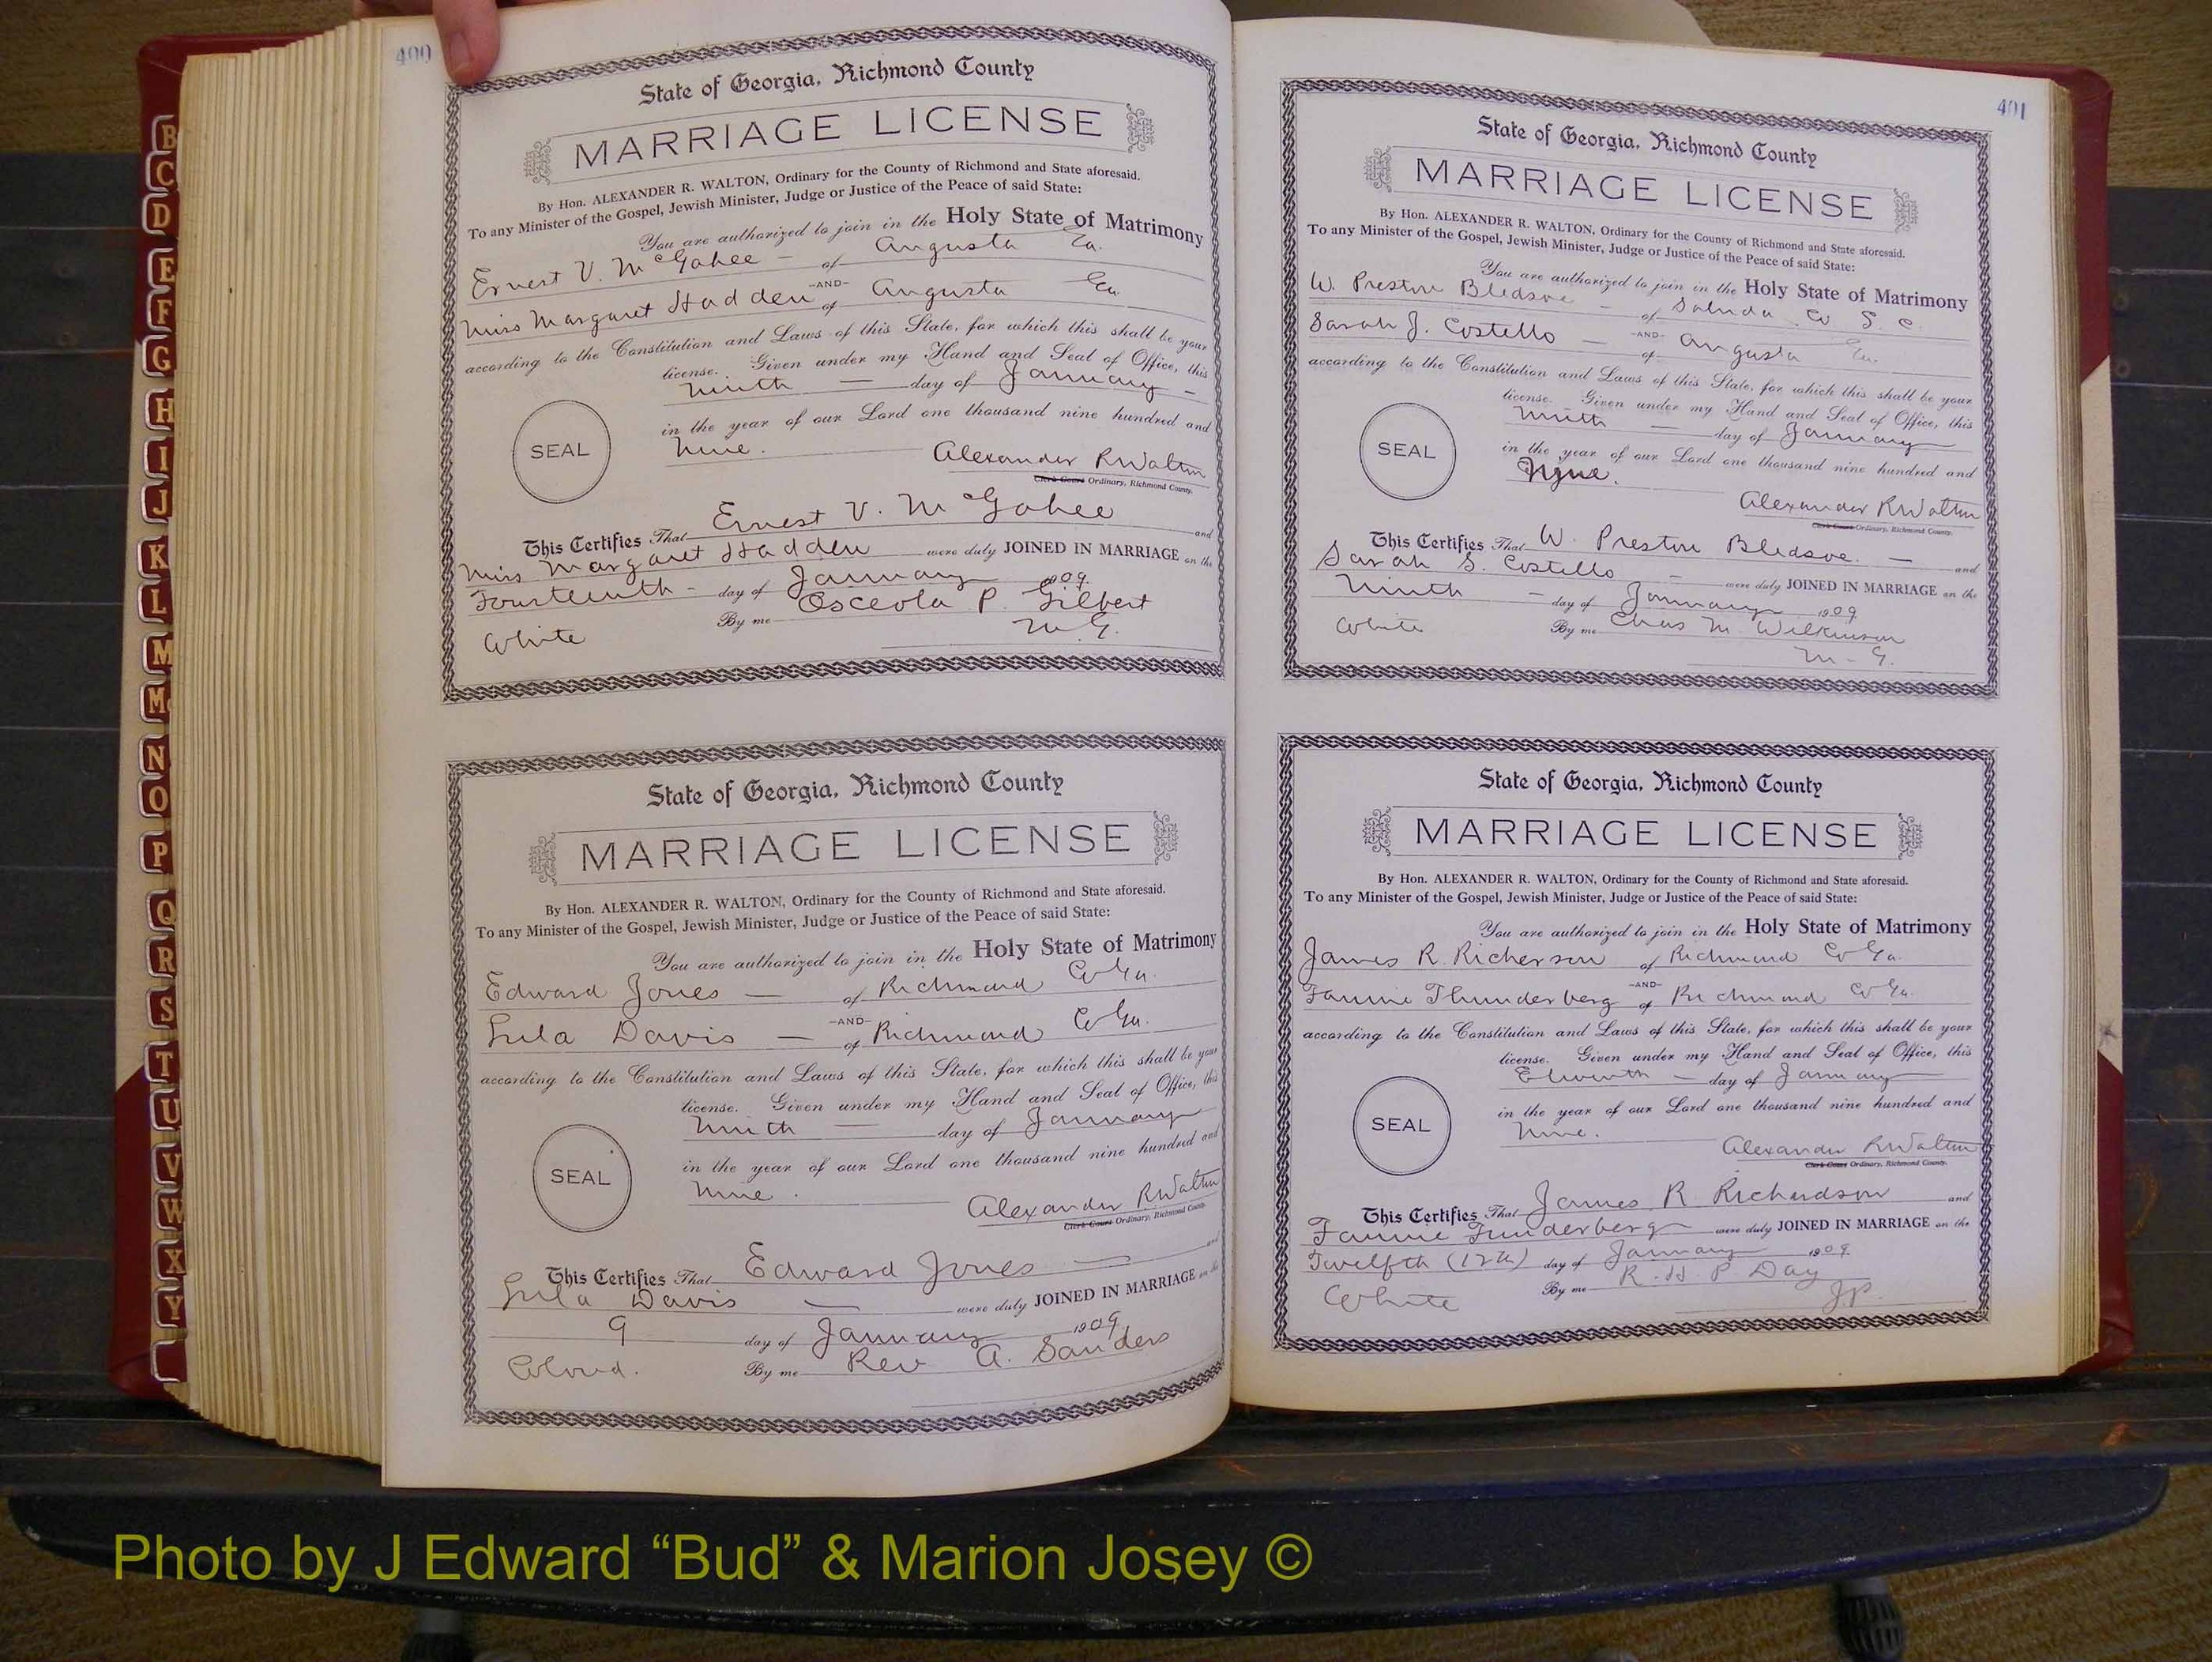 B
C
D
E
F
G
H
I
J
K
L
M
Mc
N
O
P
Q
R
S
T
U
V
W
X
Y
400
State of Georgia, Richmond County
MARRIAGE LICENSE
By Hon. ALEXANDER R. WALTON, Ordinary for the County of Richmond and State aforesaid.
To any Minister of the Gospel, Jewish Minister, Judge or Justice of the Peace of said State:
You are authorized to join in the Holy State of Matrimony
Ernest V. McGahee — of Augusta Ga.
—AND—
Miss Margaret Hadden of Augusta Ga
according to the Constitution and Laws of this State, for which this shall be your
license. Given under my Hand and Seal of Office, this
ninth — day of January —
in the year of our Lord one thousand nine hundred and
nine.
SEAL
Alexander R Walton
Clerk Court Ordinary, Richmond County.
This Certifies That Ernest V. McGahee and
Miss Margaret Hadden were duly JOINED IN MARRIAGE on the
Fourteenth — day of January 1909.
White By me Osceola P. Gilbert
M.G.
State of Georgia, Richmond County
MARRIAGE LICENSE
By Hon. ALEXANDER R. WALTON, Ordinary for the County of Richmond and State aforesaid.
To any Minister of the Gospel, Jewish Minister, Judge or Justice of the Peace of said State:
You are authorized to join in the Holy State of Matrimony
Edward Jones — of Richmond Co Ga.
—AND—
Lula Davis — of Richmond Co Ga.
according to the Constitution and Laws of this State, for which this shall be your
license. Given under my Hand and Seal of Office, this
ninth — day of January
in the year of our Lord one thousand nine hundred and
nine.
SEAL
Alexander R Walton
Clerk Court Ordinary, Richmond County.
This Certifies That Edward Jones — and
Lula Davis — were duly JOINED IN MARRIAGE on the
9 day of January 1909.
Colored. By me Rev A. Sanders
401
State of Georgia, Richmond County
MARRIAGE LICENSE
By Hon. ALEXANDER R. WALTON, Ordinary for the County of Richmond and State aforesaid.
To any Minister of the Gospel, Jewish Minister, Judge or Justice of the Peace of said State:
You are authorized to join in the Holy State of Matrimony
W. Preston Bledsoe — of Saluda Co S. C.
—AND—
Sarah J. Costello — of Augusta Ga.
according to the Constitution and Laws of this State, for which this shall be your
license. Given under my Hand and Seal of Office, this
ninth — day of January
in the year of our Lord one thousand nine hundred and
Nine.
SEAL
Alexander R Walton
Clerk Court Ordinary, Richmond County.
This Certifies That W. Preston Bledsoe. — and
Sarah S. Costello — were duly JOINED IN MARRIAGE on the
Ninth — day of January 1909
White By me Chas M. Wilkinson
M-G.
State of Georgia, Richmond County
MARRIAGE LICENSE
By Hon. ALEXANDER R. WALTON, Ordinary for the County of Richmond and State aforesaid.
To any Minister of the Gospel, Jewish Minister, Judge or Justice of the Peace of said State:
You are authorized to join in the Holy State of Matrimony
James R. Richerson of Richmond Co Ga.
—AND—
Fannie Thunderberg of Richmond Co Ga.
according to the Constitution and Laws of this State, for which this shall be your
license. Given under my Hand and Seal of Office, this
Eleventh — day of January
in the year of our Lord one thousand nine hundred and
nine.
SEAL
Alexander R Walton
Clerk Court Ordinary, Richmond County.
This Certifies That James R Richardson and
Fannie Funderberg were duly JOINED IN MARRIAGE on the
Twelfth (12th) day of January 1909
White By me R. H. P. Day
JP.
Photo by J Edward “Bud” & Marion Josey ©